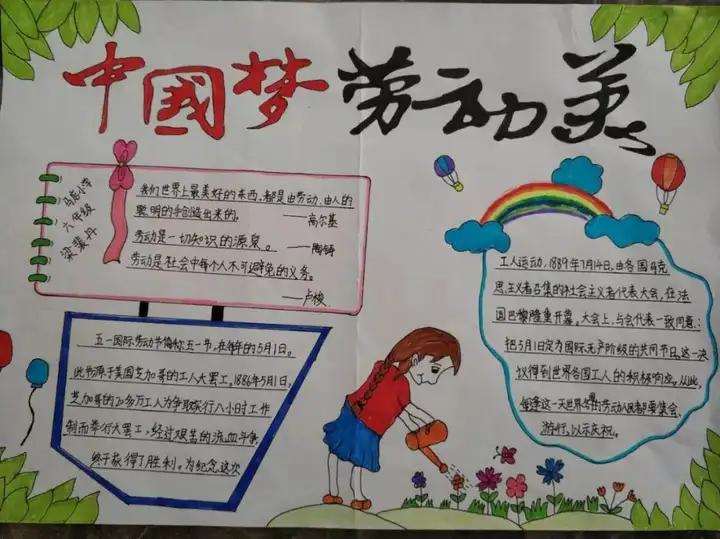 中国梦 劳动美
马庙小学
六年级
梁裴丹
我们世界上最美好的东西,都是由劳动、由人的
聪明的手创造出来的。
——高尔基
劳动是一切知识的源泉。——陶铸
劳动是社会中每个人不可避免的义务。
——卢梭
五一国际劳动节简称五一节,在每年的5月1日。
此节源于美国芝加哥的工人大罢工,1886年5月1日,
芝加哥的20多万工人为争取实行八小时工作
制而举行大罢工,经过艰苦的流血斗争
终于获得了胜利。为纪念这次
工人运动,1889年7月14日,由各国马克
思主义者召集的社会主义者代表大会,在法
国巴黎隆重开幕。大会上,与会代表一致同意:
把5月1日定为国际无产阶级的共同节日。这一决
议得到世界各国工人的积极响应。从此,
每逢这一天世界各国劳动人民都要集会、
游行,以示庆祝。